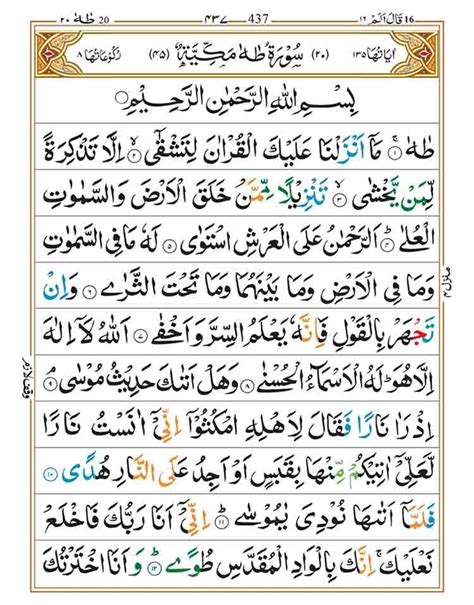 16 قَالَ اَلَمْ ١٦
437 ٤٣٧
20 طٰهٰ ٢٠
اٰیَاتُهَا ١٣٥ (٢٠) سُوْرَةُ طٰهٰ مَكِّیَّةٌ (٤٥) رُكُوْعَاتُهَا ٨
بِسْمِ اللهِ الرَّحْمٰنِ الرَّحِیْمِ
طٰهٰ ۚ ١ مَاۤ اَنْزَلْنَا عَلَیْكَ الْقُرْاٰنَ لِتَشْقٰۤی ۙ ٢ اِلَّا تَذْكِرَةً
لِّمَنْ یَّخْشٰی ۙ ٣ تَنْزِیْلًا مِّمَّنْ خَلَقَ الْاَرْضَ وَالسَّمٰوٰتِ
الْعُلٰی ؕ ٤ اَلرَّحْمٰنُ عَلَی الْعَرْشِ اسْتَوٰی ٥ لَهٗ مَا فِی السَّمٰوٰتِ
وَمَا فِی الْاَرْضِ وَمَا بَیْنَهُمَا وَمَا تَحْتَ الثَّرٰی ٦ وَاِنْ
تَجْهَرْ بِالْقَوْلِ فَاِنَّهٗ یَعْلَمُ السِّرَّ وَاَخْفٰی ٧ اَللهُ لَاۤ اِلٰهَ
اِلَّا هُوَ ؕ لَهُ الْاَسْمَآءُ الْحُسْنٰی ٨ وَهَلْ اَتٰىكَ حَدِیْثُ مُوْسٰی ۘ ٩
اِذْ رَاٰ نَارًا فَقَالَ لِاَهْلِهِ امْكُثُوْۤا اِنِّیْۤ اٰنَسْتُ نَارًا
لَّعَلِّیْۤ اٰتِیْكُمْ مِّنْهَا بِقَبَسٍ اَوْ اَجِدُ عَلَی النَّارِ هُدًی ١٠
فَلَمَّاۤ اَتٰىهَا نُوْدِیَ یٰمُوْسٰی ؕ ١١ اِنِّیْۤ اَنَا رَبُّكَ فَاخْلَعْ
نَعْلَیْكَ ۚ اِنَّكَ بِالْوَادِ الْمُقَدَّسِ طُوًی ؕ ١٢ وَاَنَا اخْتَرْتُكَ